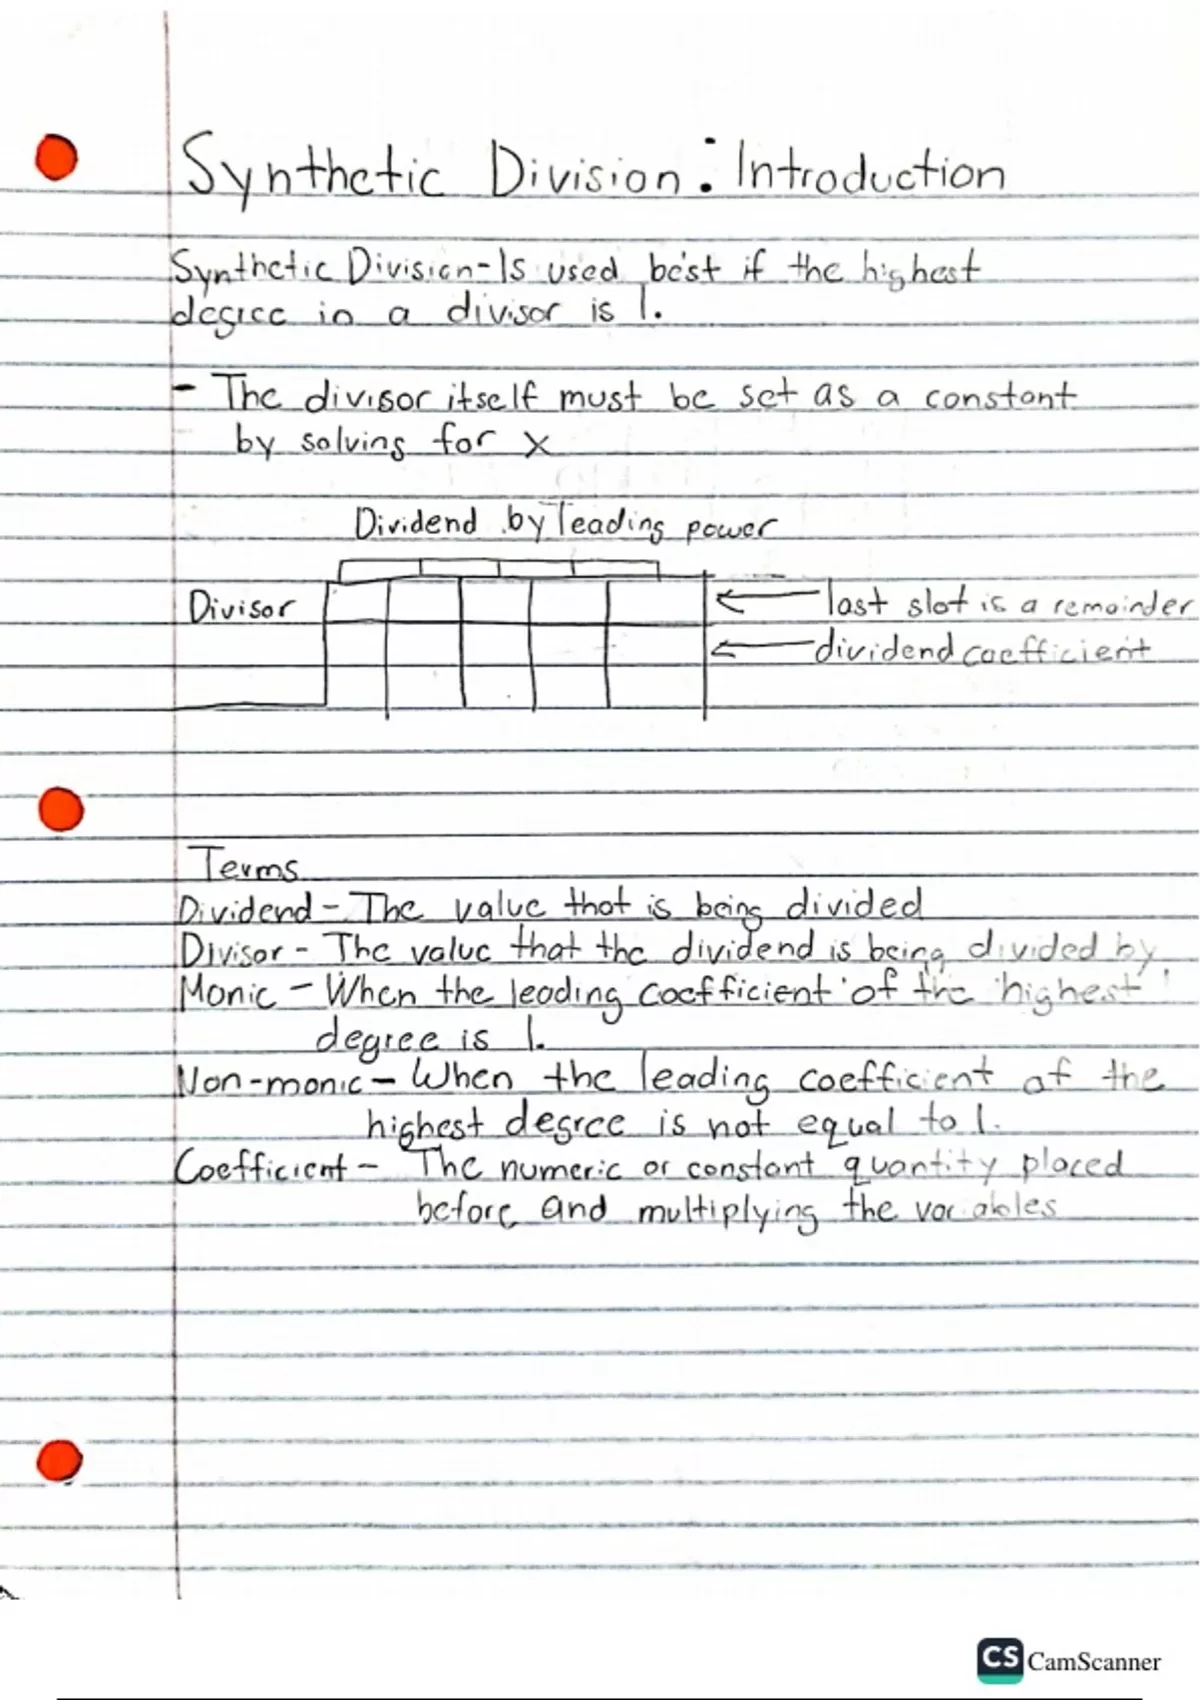 Synthetic Division: Introduction
Synthetic Division-Is used best if the highest
degree in a divisor is 1.
- The divisor itself must be set as a constant
by solving for x
Dividend by leading power
Divisor
last slot is a remainder
dividend coefficient
Terms
Dividend - The value that is being divided
Divisor - The value that the dividend is being divided by
Monic - When the leading coefficient of the highest
degree is 1.
Non-monic - When the leading coefficient of the
highest degree is not equal to 1.
Coefficient - The numeric or constant quantity placed
before and multiplying the variables
CS CamScanner